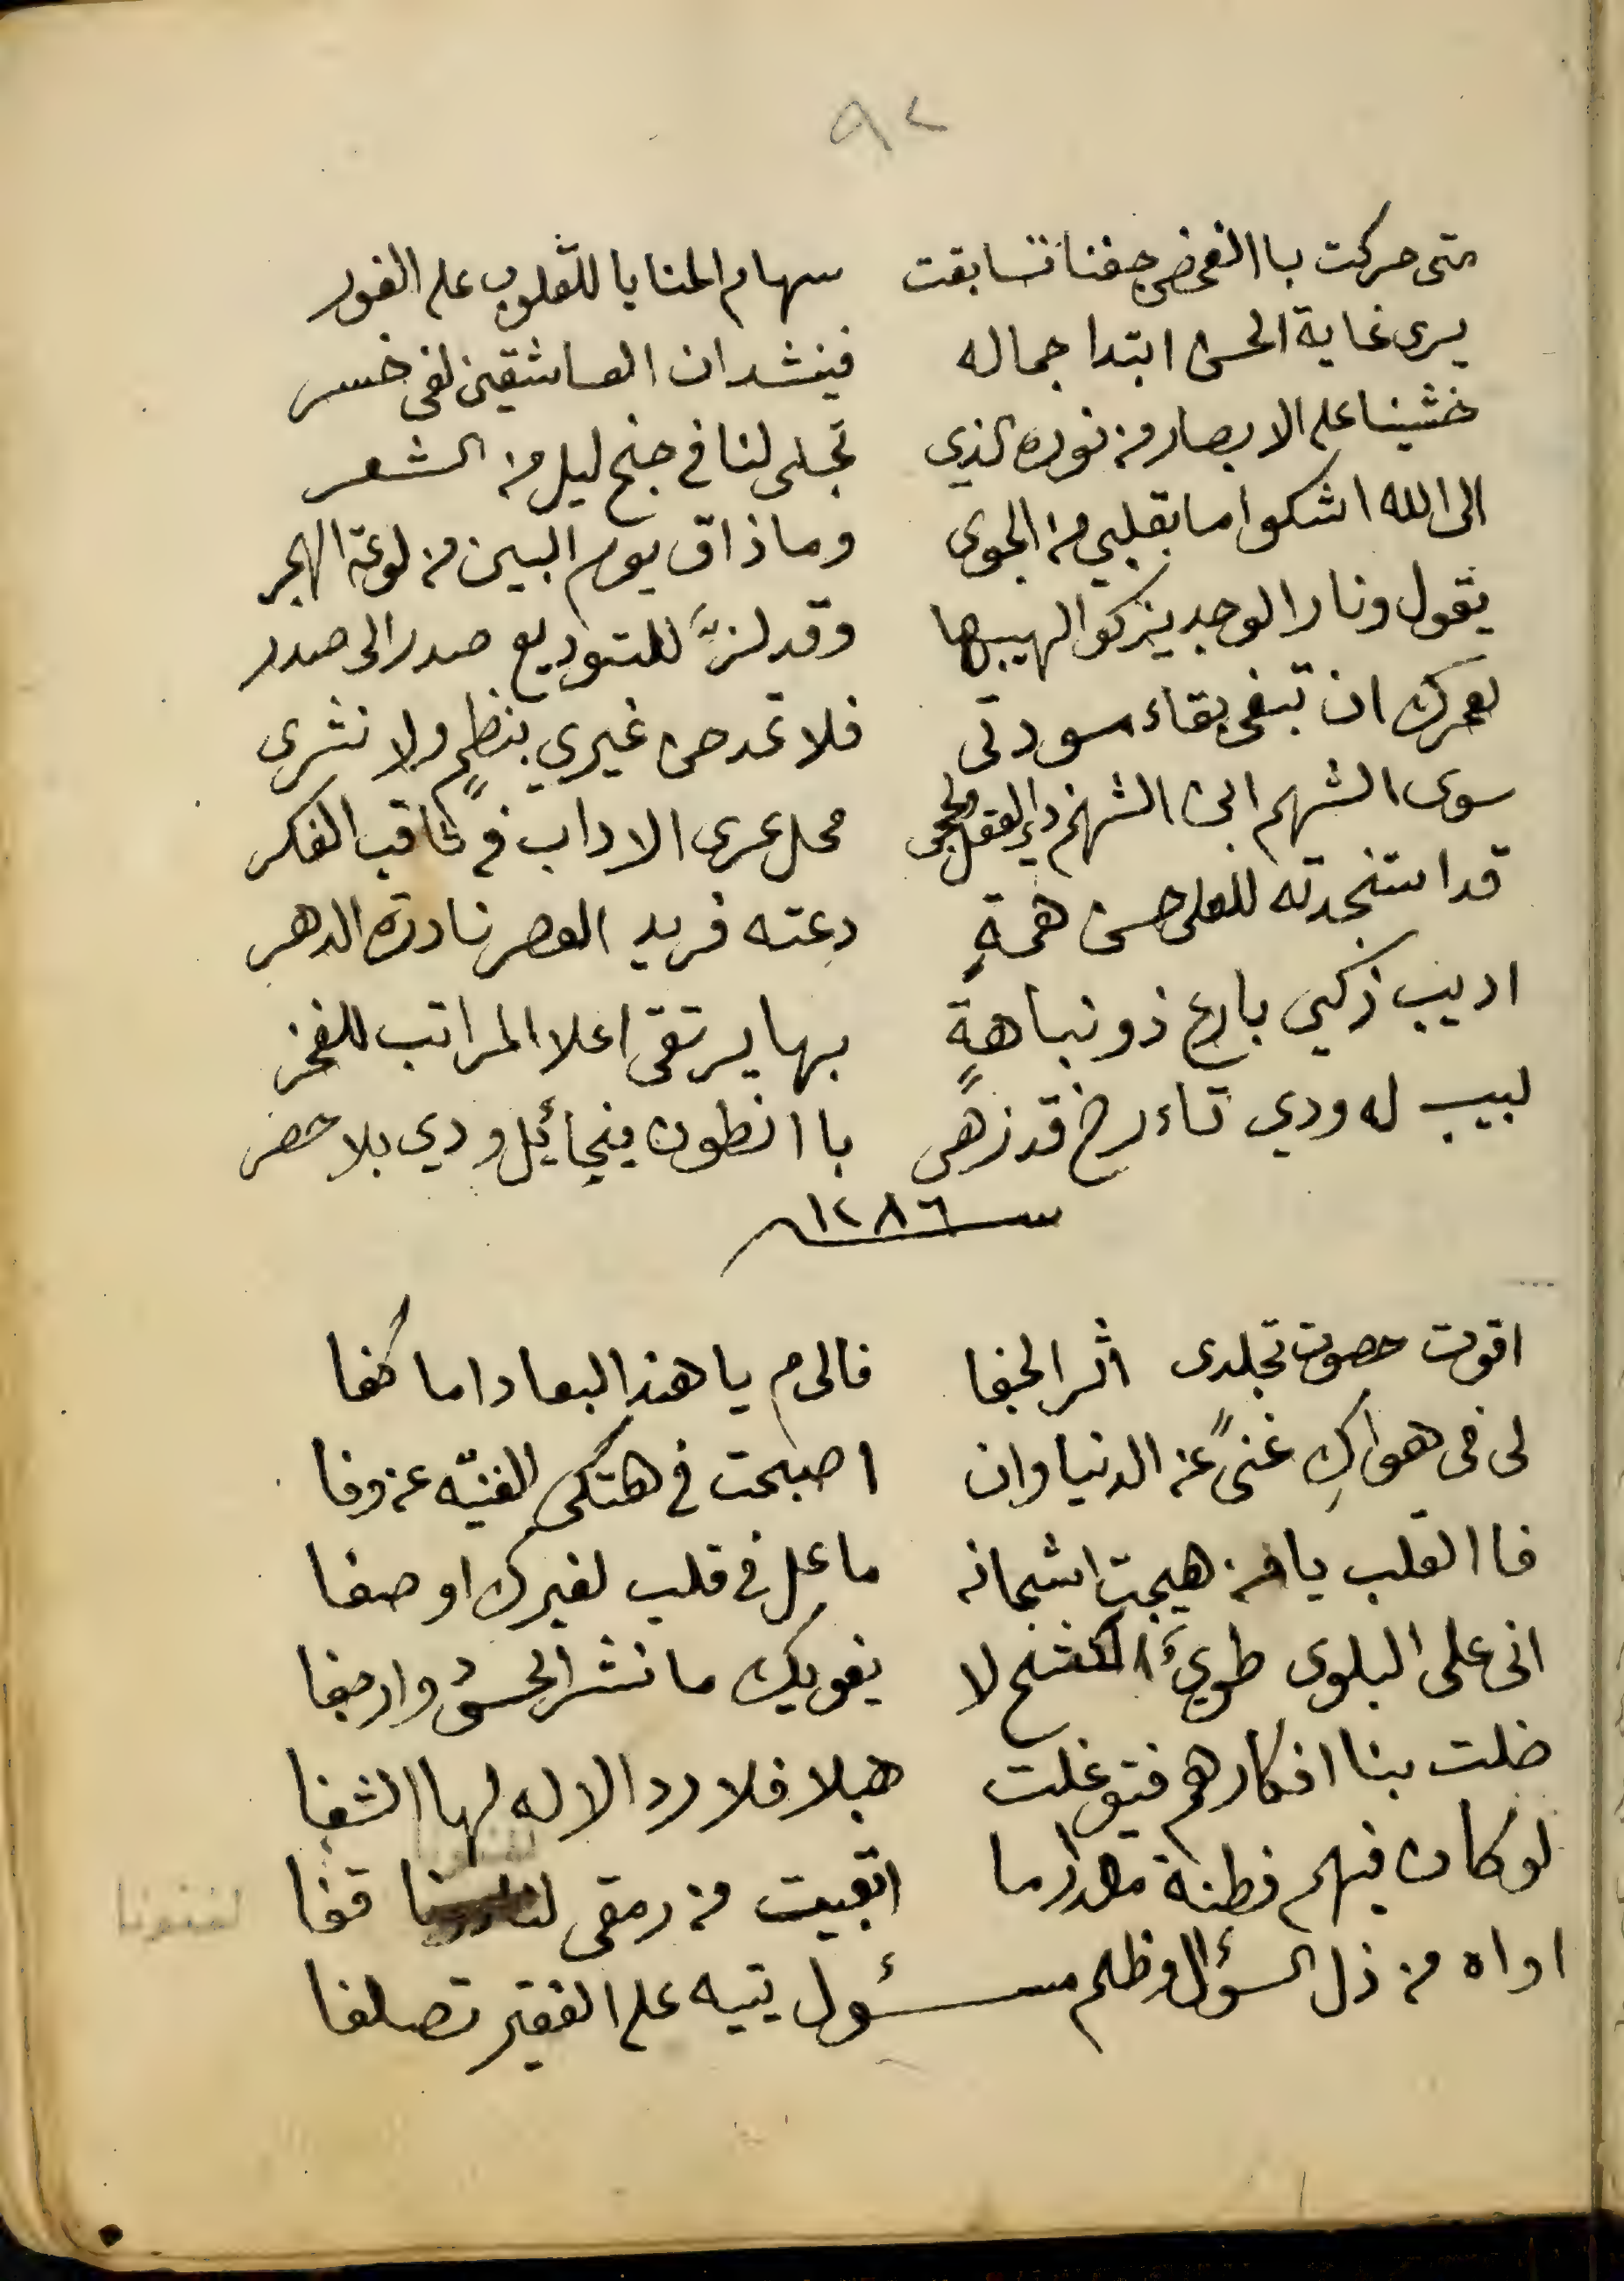 ٩٢
متى حركت باالغمض جفنا تسابقت سهام المنايا للقلوب على الفور
يرى غاية الحسن ابتدا جماله فينشد ان العاشقين لفى خسر
خشينا على الابصار من نوره الذي تجلى لنا في جنح ليل من الشعر
الى الله اشكوا ما بقلبي من الجوى وما ذاق يوم البين من لوعة الهجر
يقول ونار الوجد يزكوا لهيبها وقد لزَّ للتوديع صدر الى صدر
لعمرك ان تبغى بقاء مودتى فلا تمدحن غيري بنظمٍ ولا نثرى
سوى الشهم ابن الشهم ذاي العقل والحجى محل عرى الاداب في ثاقب الفكر
قد استنجدته للعلى حسن همةٍ دعته فريد العصر نادرة الدهر
اديب زكي بارع ذو نباهةٍ بها يرتقى اعلا المراتب للفخر
لبيب له ودي تاءرخ قد زهى با انطون ميخائيل ودي بلا حضر
سنة ١٢٨٦
اقوت حصون تجلدى اثر الجفا فالى م يا هند البعاد اما كفا
لى فى هواكِ غنىً عن الدنيا وان اصبحت في هتكى الفنيّه عن وفا
فا القلب يا من هيجت اشجانه ما حل في قلب لغيرك او صفا
انى على البلوى طويُ الكشح لا يغويك ما نشر الحسود وارجفا
ضلت بنا افكارهم فتوغلت هبلا فلا رد الاله لها الشفا
لو كان فيهم فطنة ابقيت من رمقى قفا لفنونا
اواه من ذل السؤال وظلم مسئول يتيه على الفقير تصلفا